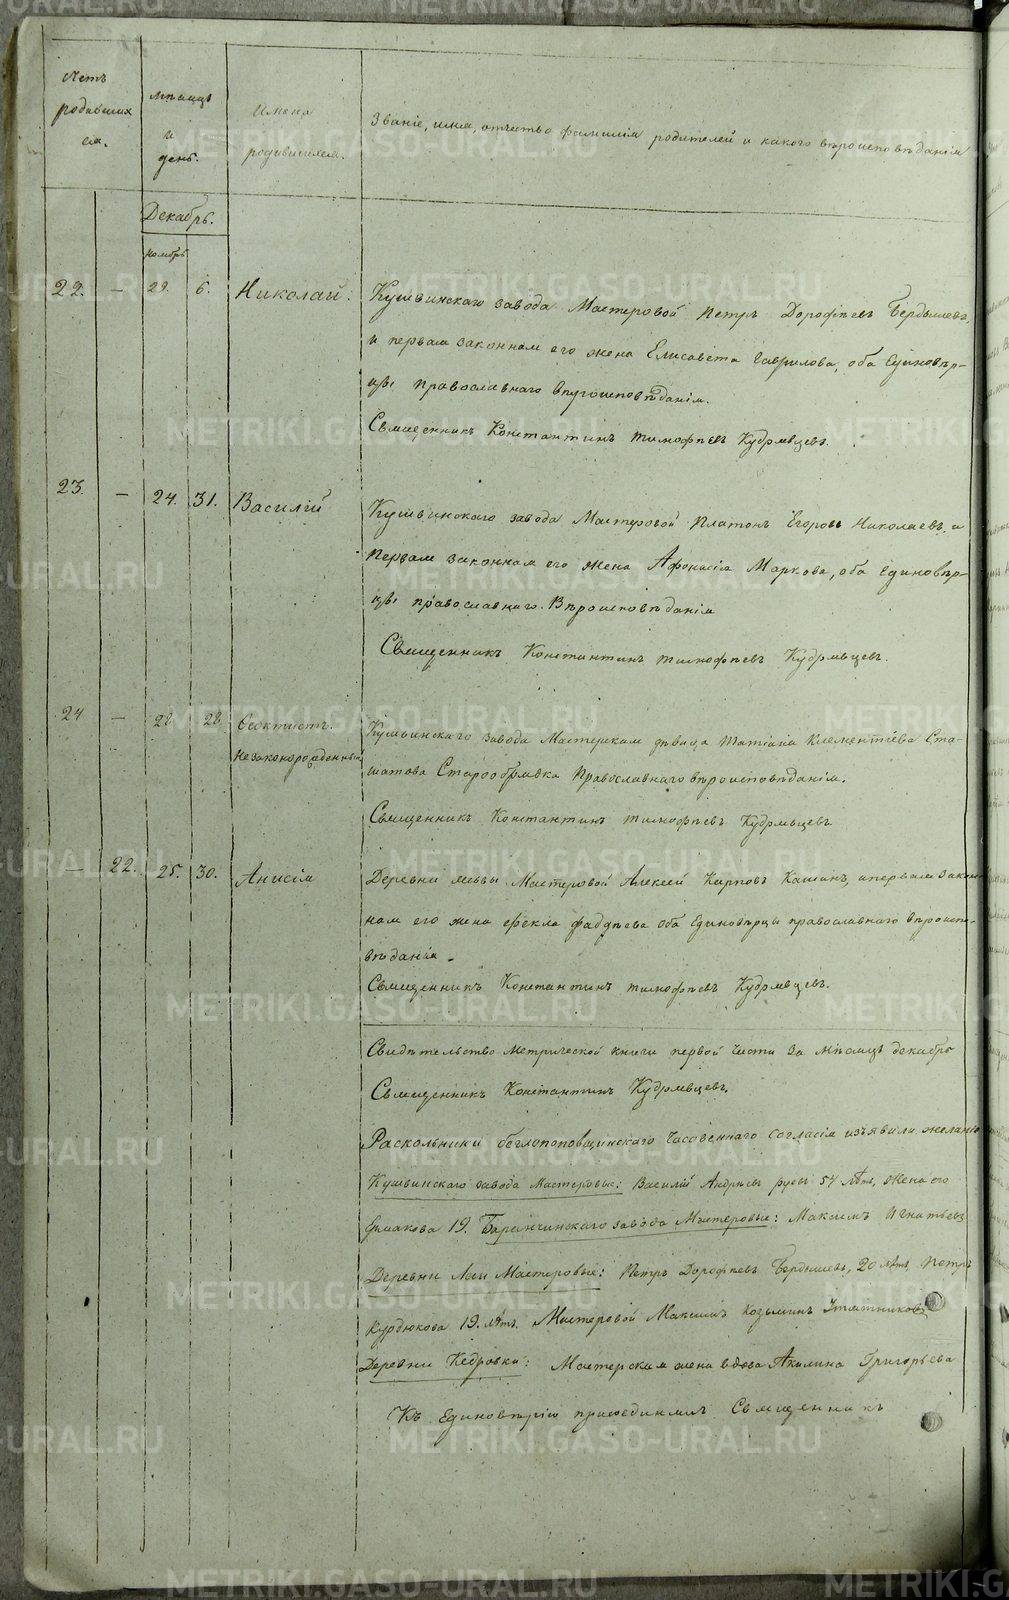 METRIKI.GASO-URAL.RU
Летъ родившихся.
мѣсяцъ и день.
Имена родившихся.
Званіе, имя, отчество фамилія родителей и какого вѣроисповѣданія
Декабрь.
Ноябрь
22. — 29. 6. Николай. Кушвинскаго завода Мастеровой Петръ Дорофѣевъ Бердышевъ,
и первая законная его жена Елисавета Гаврилова, оба Единовѣр-
цы православнаго вѣроисповѣданія.
Священникъ Константинъ Тимофѣевъ Кудрявцевъ.
23. — 24. 31. Василій Кушвинскаго завода Мастеровой Платонъ Егоровъ Николаевъ, и
Первая законная его жена Афонасія Маркова, оба Единовѣр-
цы православнаго. Вѣроисповѣданія
Священникъ Константинъ Тимофѣевъ Кудрявцевъ.
24 — 28 28 Феоктистъ. Кушвинскаго завода Мастерская дѣвица Татіана Клементіева Ста-
незаконорожденный
шатова Старообрядка Православнаго вѣроисповѣданія.
Священникъ Константинъ Тимофѣевъ Кудрявцевъ
— 22. 25. 30. Анисія Деревни Мастеровой Алексѣй Карповъ Кашинъ, и первая закон-
ная его жена Фекла Фаддѣева оба Единовѣрцы православнаго вѣроиспо-
вѣданія.
Священникъ Константинъ Тимофѣевъ Кудрявцевъ.
Свидѣтельство Метрической книги первой части за мѣсяцъ декабрь
Священникъ Константинъ Кудрявцевъ.
Раскольники беглопоповщинскаго Часовеннаго Согласія изъявили желаніе
Кушвинскаго завода Мастеровые: Василій Андрѣевъ 54 лѣтъ, жена его
19. Баранчинскаго завода Мастеровые: Максимъ Игнатьевъ
Деревни Мастеровые: Петръ Дорофѣевъ Бердышевъ, 20 лѣтъ, Петръ
Курдюкова 19. лѣтъ. Мастеровой Максимъ Козьминъ
Деревни Кедровки: Мастерская жена вдова Акилина Григорьева
Къ Единовѣрію присоединилъ Священникъ